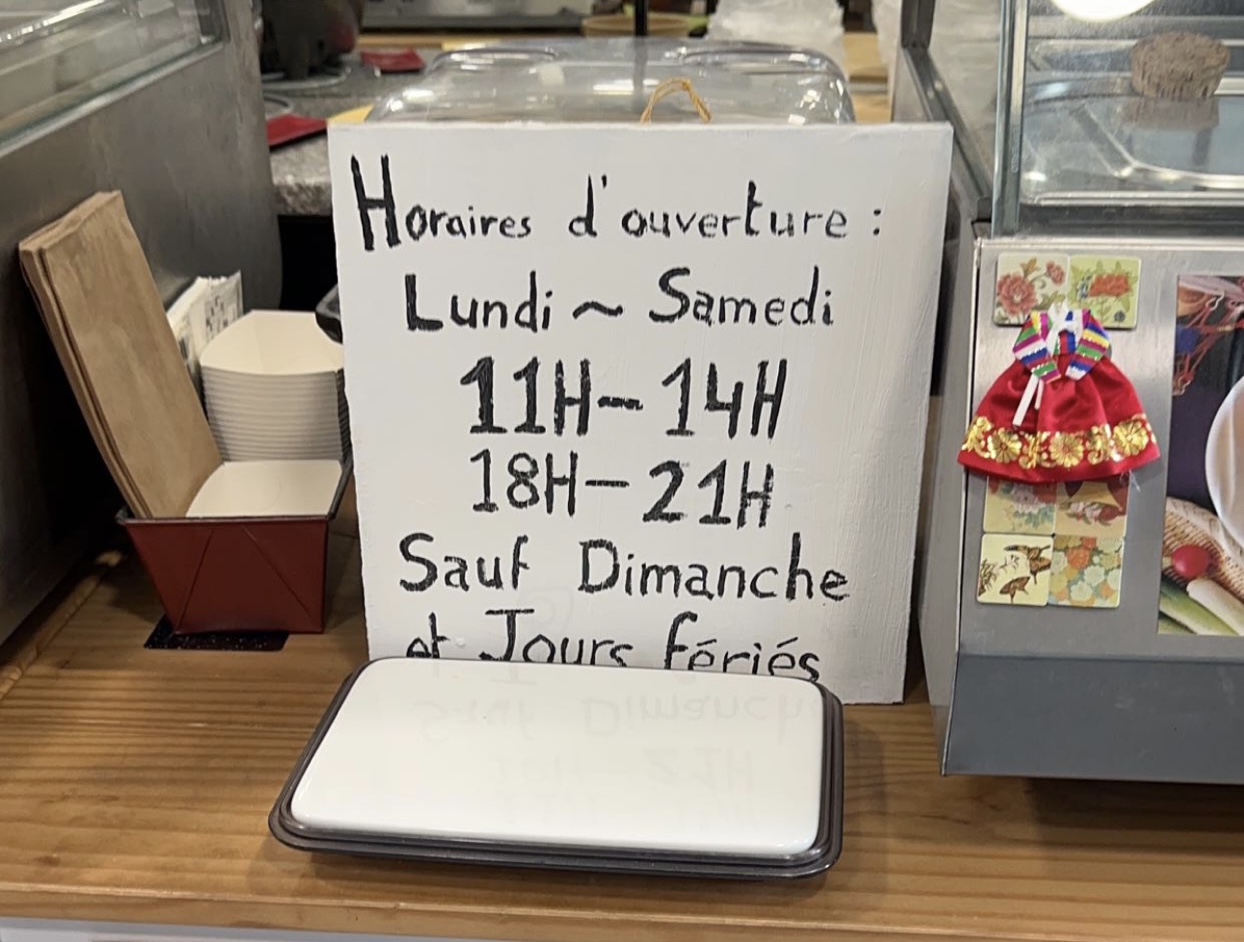 Horaires d'ouverture :
Lundi ~ Samedi
11H - 14H
18H - 21H
Sauf Dimanche
et Jours fériés